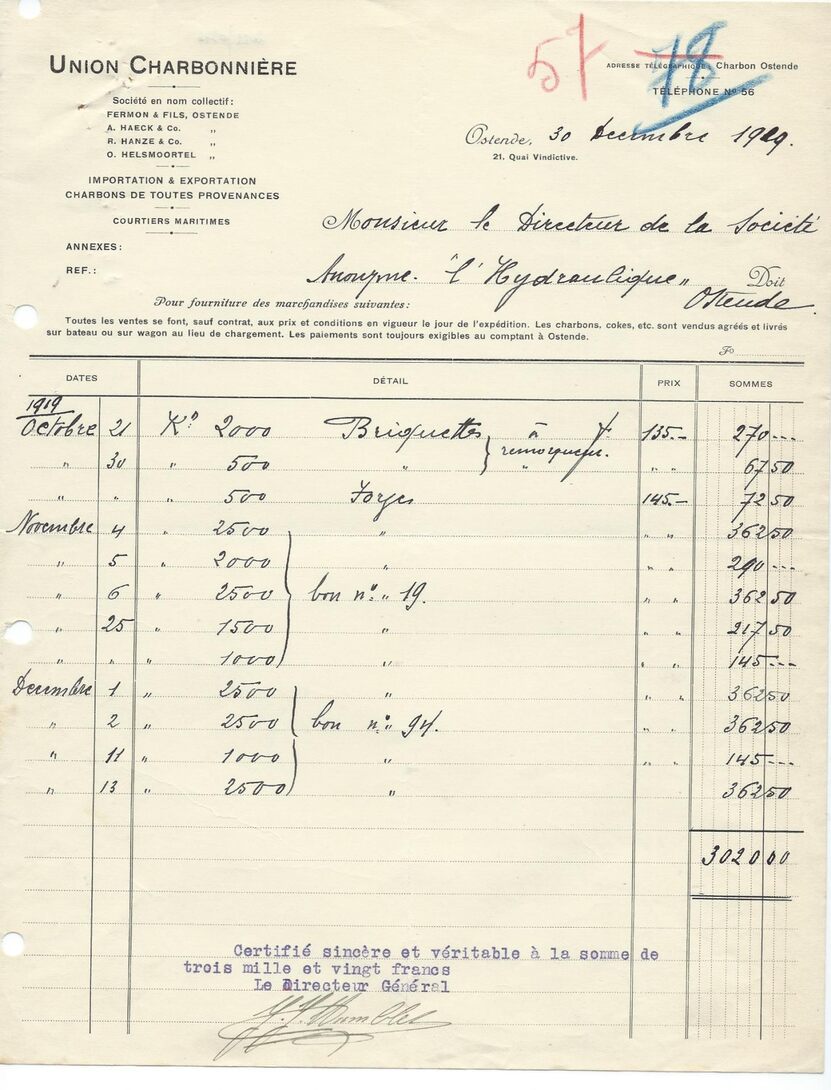 57
78
UNION CHARBONNIÈRE
ADRESSE TÉLÉGRAPHIQUE: Charbon Ostende
TÉLÉPHONE No 56
Société en nom collectif:
FERMON & FILS, OSTENDE
A. HAECK & Co. „
R. HANZE & Co. „
O. HELSMOORTEL „
Ostende, 30 Decembre 1919.
21. Quai Vindictive.
IMPORTATION & EXPORTATION
CHARBONS DE TOUTES PROVENANCES
COURTIERS MARITIMES
Monsieur le Directeur de la Société
ANNEXES:
REF.:
Anonyme "l'Hydraulique„ Doit
Ostende
Pour fourniture des marchandises suivantes:
Toutes les ventes se font, sauf contrat, aux prix et conditions en vigueur le jour de l'expédition. Les charbons, cokes, etc. sont vendus agréés et livrés
sur bateau ou sur wagon au lieu de chargement. Les paiements sont toujours exigibles au comptant à Ostende.
Fo
DATES DÉTAIL PRIX SOMMES
1919
Octobre 21 Ko 2000 Briquettes à 135.- 270 ---
„ 30 „ 500 „ remorqueur. „ „ 67 50
„ „ „ 500 Forges 145.- 72 50
Novembre 4 „ 2500 „ 362 50
„ 5 „ 2000 „ „ „ 290 ---
„ 6 „ 2500 bon no „ 19. „ „ 362 50
„ 25 „ 1500 „ „ „ 217 50
„ „ „ 1000 „ „ „ 145 ---
Decembre 1 „ 2500 „ „ „ 362 50
„ 2 „ 2500 bon no „ 94. „ „ 362 50
„ 11 „ 1000 „ „ „ 145 ---
„ 13 „ 2500 „ 362 50
3020 00
Certifié sincère et véritable à la somme de
trois mille et vingt francs
Le Directeur Général